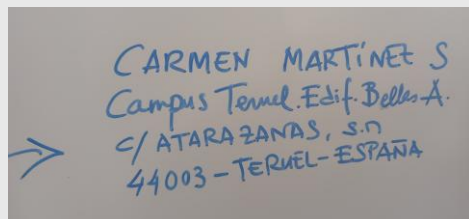 CARMEN MARTÍNEZ S
Campus Teruel. Edif. Bellas-A.
C/ ATARAZANAS, S.n
44003-TERUEL-ESPAÑA